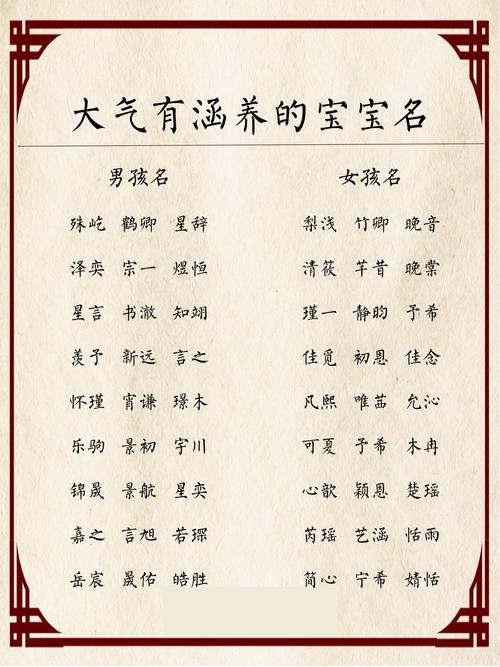 大气有涵养的宝宝名
男孩名
殊屹 鹤卿 星辞
泽奕 宗一 煜恒
星言 书澈 知翊
羡予 新远 言之
怀瑾 宵谦 璟木
乐驹 景初 宇川
锦晟 景航 星奕
嘉之 言旭 若琛
岳宸 晟佑 皓胜
女孩名
梨浅 竹卿 晚音
清筱 芊昔 晚棠
瑾一 静昀 予希
佳觅 初恩 佳念
凡熙 唯茁 允沁
可夏 予希 木冉
心歆 颖恩 楚瑶
芮瑶 艺涵 恬雨
简心 宁希 婧恬